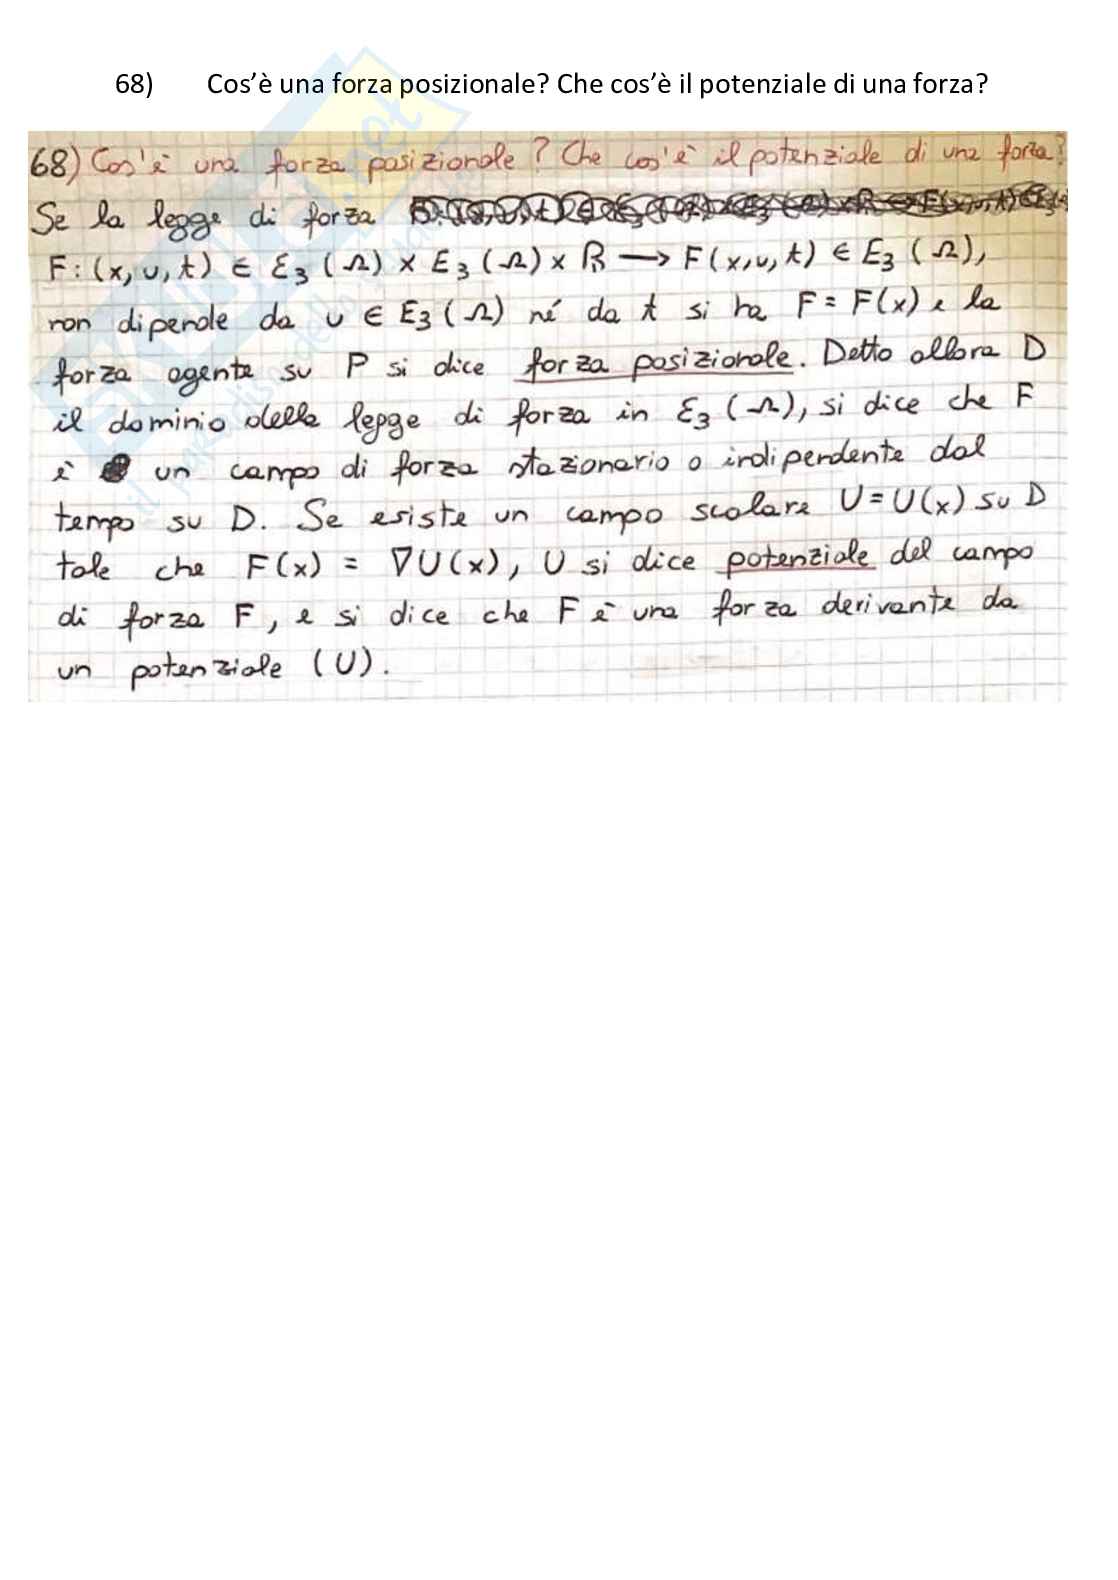 68) Cos'è una forza posizionale? Che cos'è il potenziale di una forza?
68) Cos'è una forza posizionale? Che cos'è il potenziale di una forza?
Se la legge di forza
F: (x, υ, t) ∈ Ɛ₃ (Ω) × E₃ (Ω) × ℝ ⟶ F(x,υ,t) ∈ E₃ (Ω),
non dipende da υ ∈ E₃ (Ω) né da t si ha F = F(x) e la
forza agente su P si dice forza posizionale. Detto allora D
il dominio della legge di forza in Ɛ₃ (Ω), si dice che F
è un campo di forza stazionario o indipendente dal
tempo su D. Se esiste un campo scalare U = U(x) su D
tale che F(x) = ∇U(x), U si dice potenziale del campo
di forza F, e si dice che F è una forza derivante da
un potenziale (U).